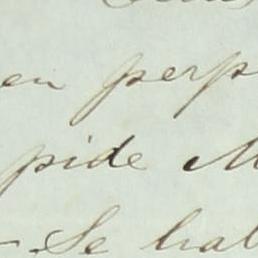 en perp
pide M
- Se hal